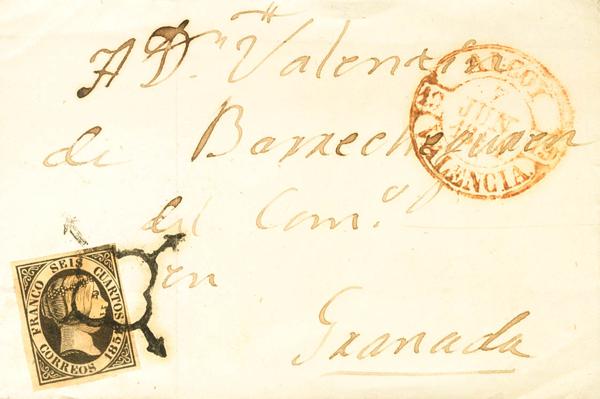 A Dn Valentin
de Barrecheguren
del Com.o
en
Granada
ALCOY
JUN
VALENCIA
FRANCO SEIS CUARTOS
CORREOS 1851